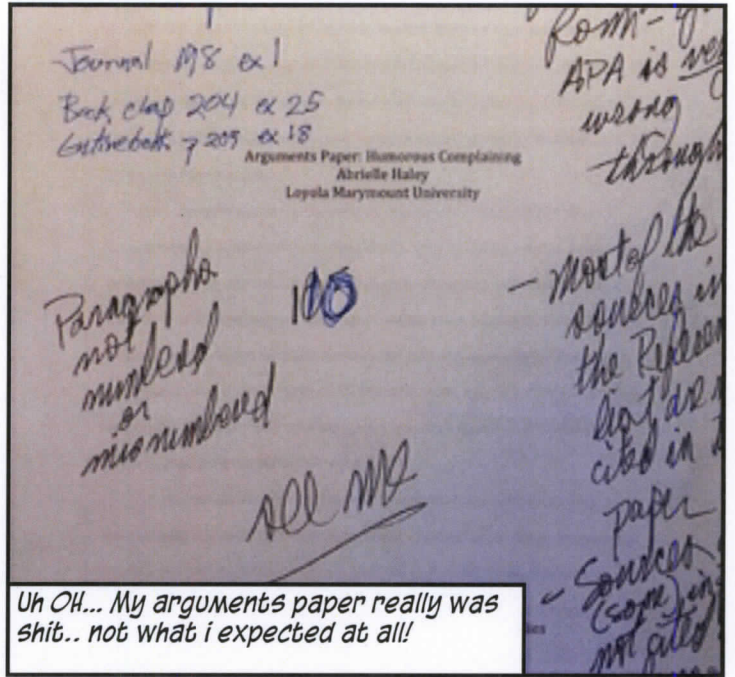 Journal 198 ex 1
Book chap 204 ex 25
Entire book p 203 ex 18
Arguments Paper: Humorous Complaining
Abrielle Haley
Loyola Marymount University
Paragraphs
not
numbered
or
misnumbered
see me
Form -
APA is
wrong
through
- Most of the
sources in
the
list are
cited in
paper
- Sources
(some) in
not cited
Uh OH... My arguments paper really was
shit.. not what i expected at all!